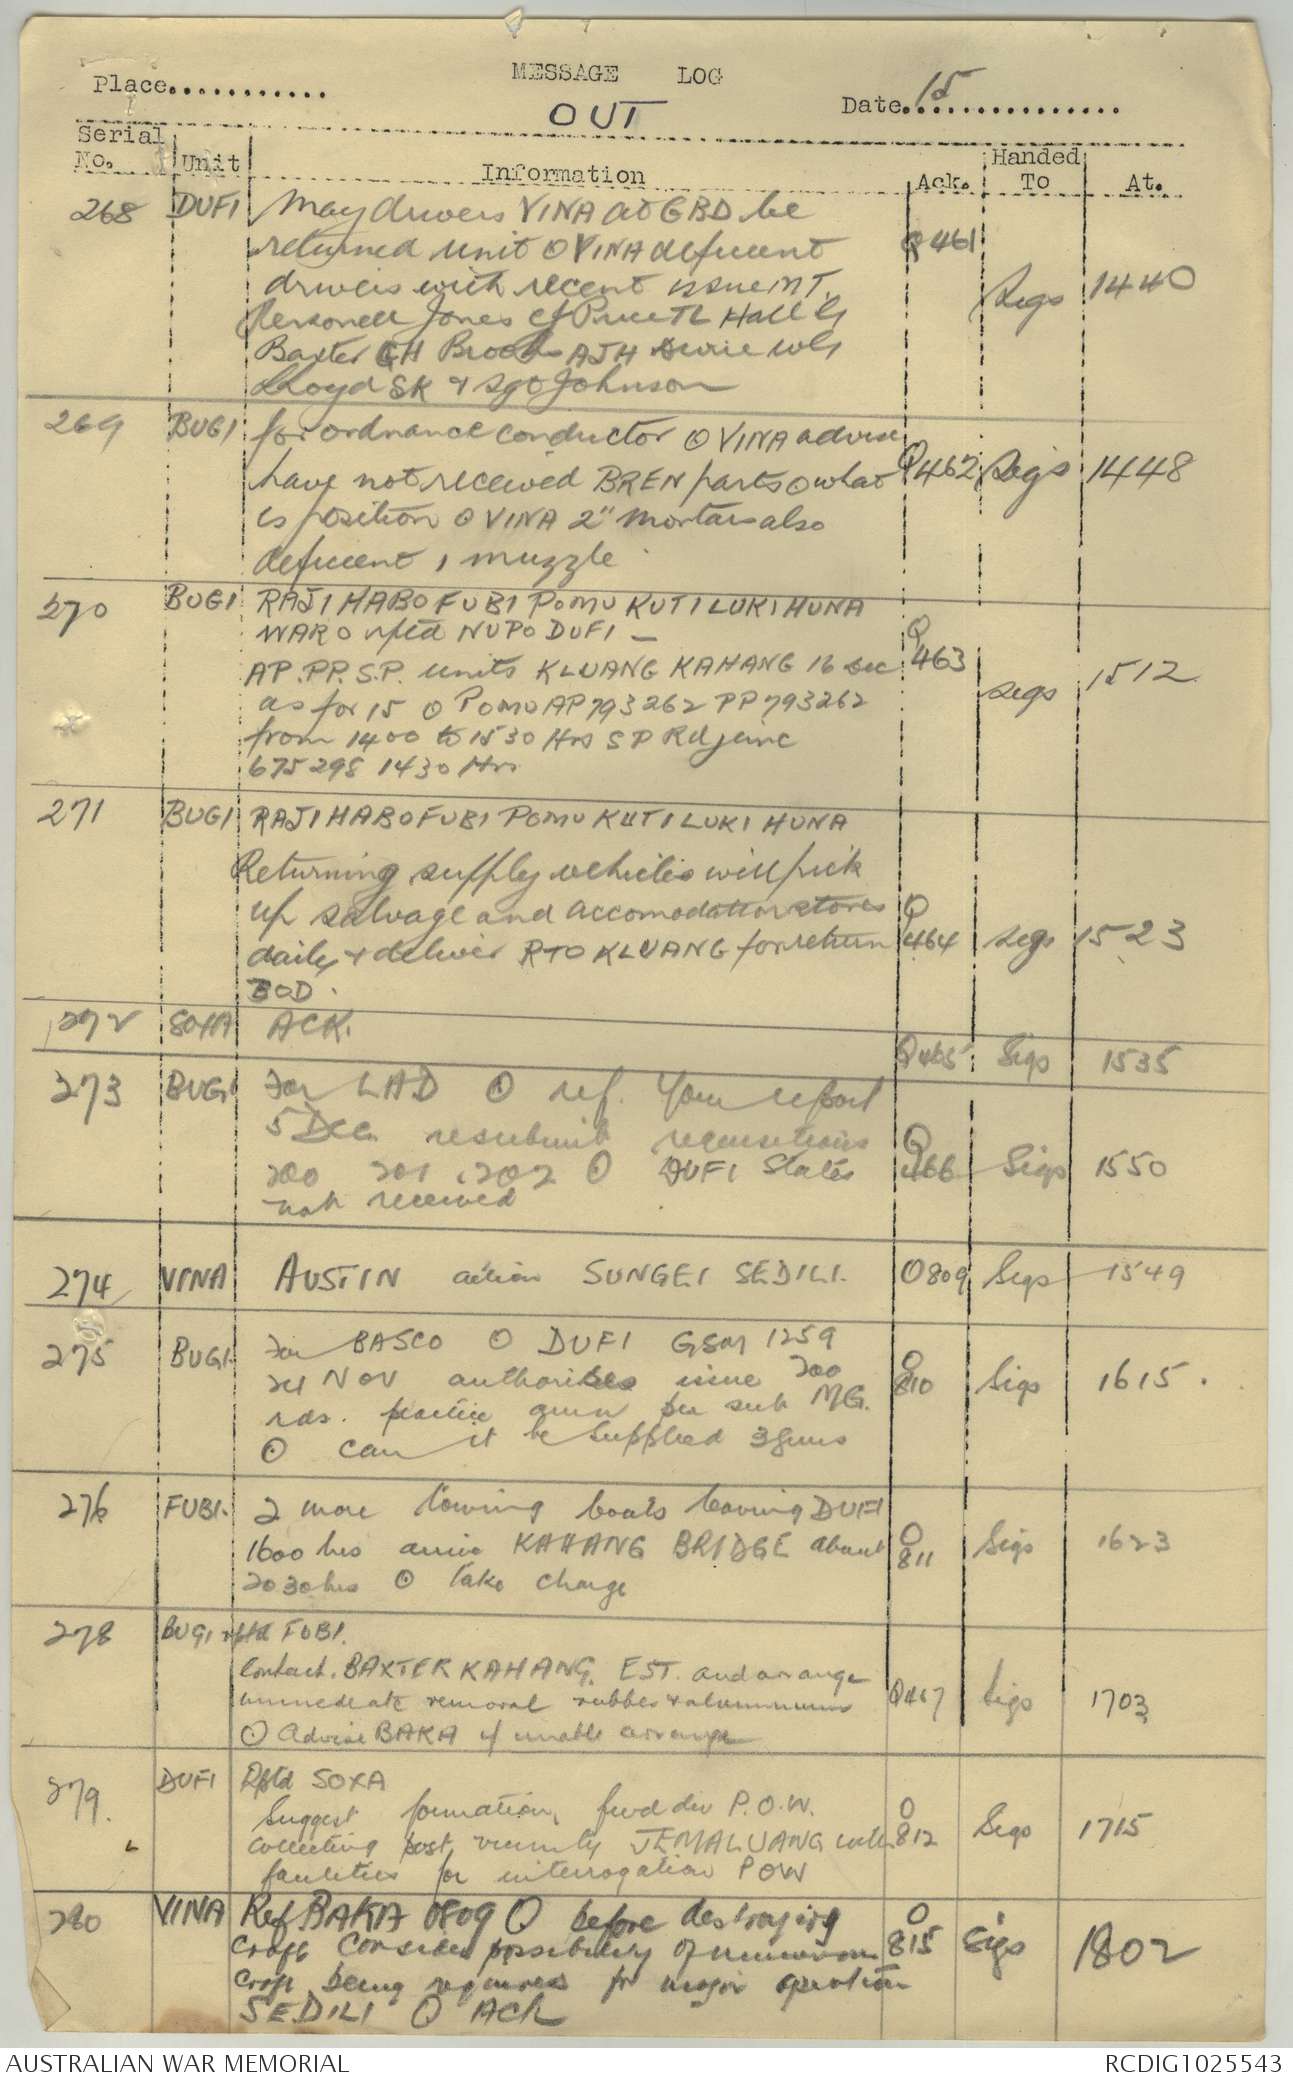 MESSAGE LOG
Place............
OUT
Date 15...............
Serial No.
Unit
Information
Ack.
Handed To
At.
268 DUFI May drivers VINA at GBD be
returned unit ⊙ VINA deficient Q461
drivers with recent issue MT. Sigs 1440
Personell Jones CJ Price TL Hall G
Baxter CH Brooks AJH WG
Lloyd SK + Sgt Johnson
269 BUGI for ordnance conductor ⊙ VINA advise
have not received BREN parts ⊙ what Q462 Sigs 1448
is position ⊙ VINA 2" mortars also
deficient 1 muzzle
270 BUGI RAJI HABO FUBI POMU KUTI LUKI HUNA
WARO rptd NUPO DUFI —
AP.PP.S.P. units KLUANG KAHANG 16 Dec Q463 Sigs 1512
as for 15 ⊙ POMU AP 793262 PP 793262
from 1400 to 1530 Hrs SP Rd junc
675298 1430 Hrs
271 BUGI RAJI HABO FUBI POMU KUTI LUKI HUNA
Returning supply vehicles will pick
up salvage and accomodation stores
daily + deliver RTO KLUANG for return Q464 Sigs 1523
BOD.
272 SOXA ACK. Q465 Sigs 1535
273 BUGI For LAD ⊙ ref. Your report
5 Dec. resubmit requisitions
200 201 202 ⊙ DUFI States Q466 Sigs 1550
not received
274 VINA AUSTIN action SUNGEI SEDILI. O809 Sigs 1549
275 BUGI. For BASCO ⊙ DUFI GSM 1259
24 NOV authorises issue 200 O810 Sigs 1615.
rds. practice amn per sub MG.
⊙ can it be supplied 3 guns
276 FUBI. 2 more towing boats leaving DUFI
1600 hrs arrive KAHANG BRIDGE about O811 Sigs 1623
2030 hrs ⊙ take charge
278 BUGI rptd FUBI.
Contact. BAXTER KAHANG. EST. and arrange
immediate removal rubber + aluminium Q467 Sigs 1703
⊙ Advise BAKA if unable arrange
279. DUFI Rptd SOXA
Suggest formation, fwd div P.O.W.
collecting post vicinity JEMALUANG with O812 Sigs 1715
facilities for interrogation POW
280 VINA Ref BAKA O809 ⊙ before destroying
craft consider possibility of O815 Sigs 1802
craft being required for major operation
SEDILI ⊙ ACK
AUSTRALIAN WAR MEMORIAL
RCDIG1025543